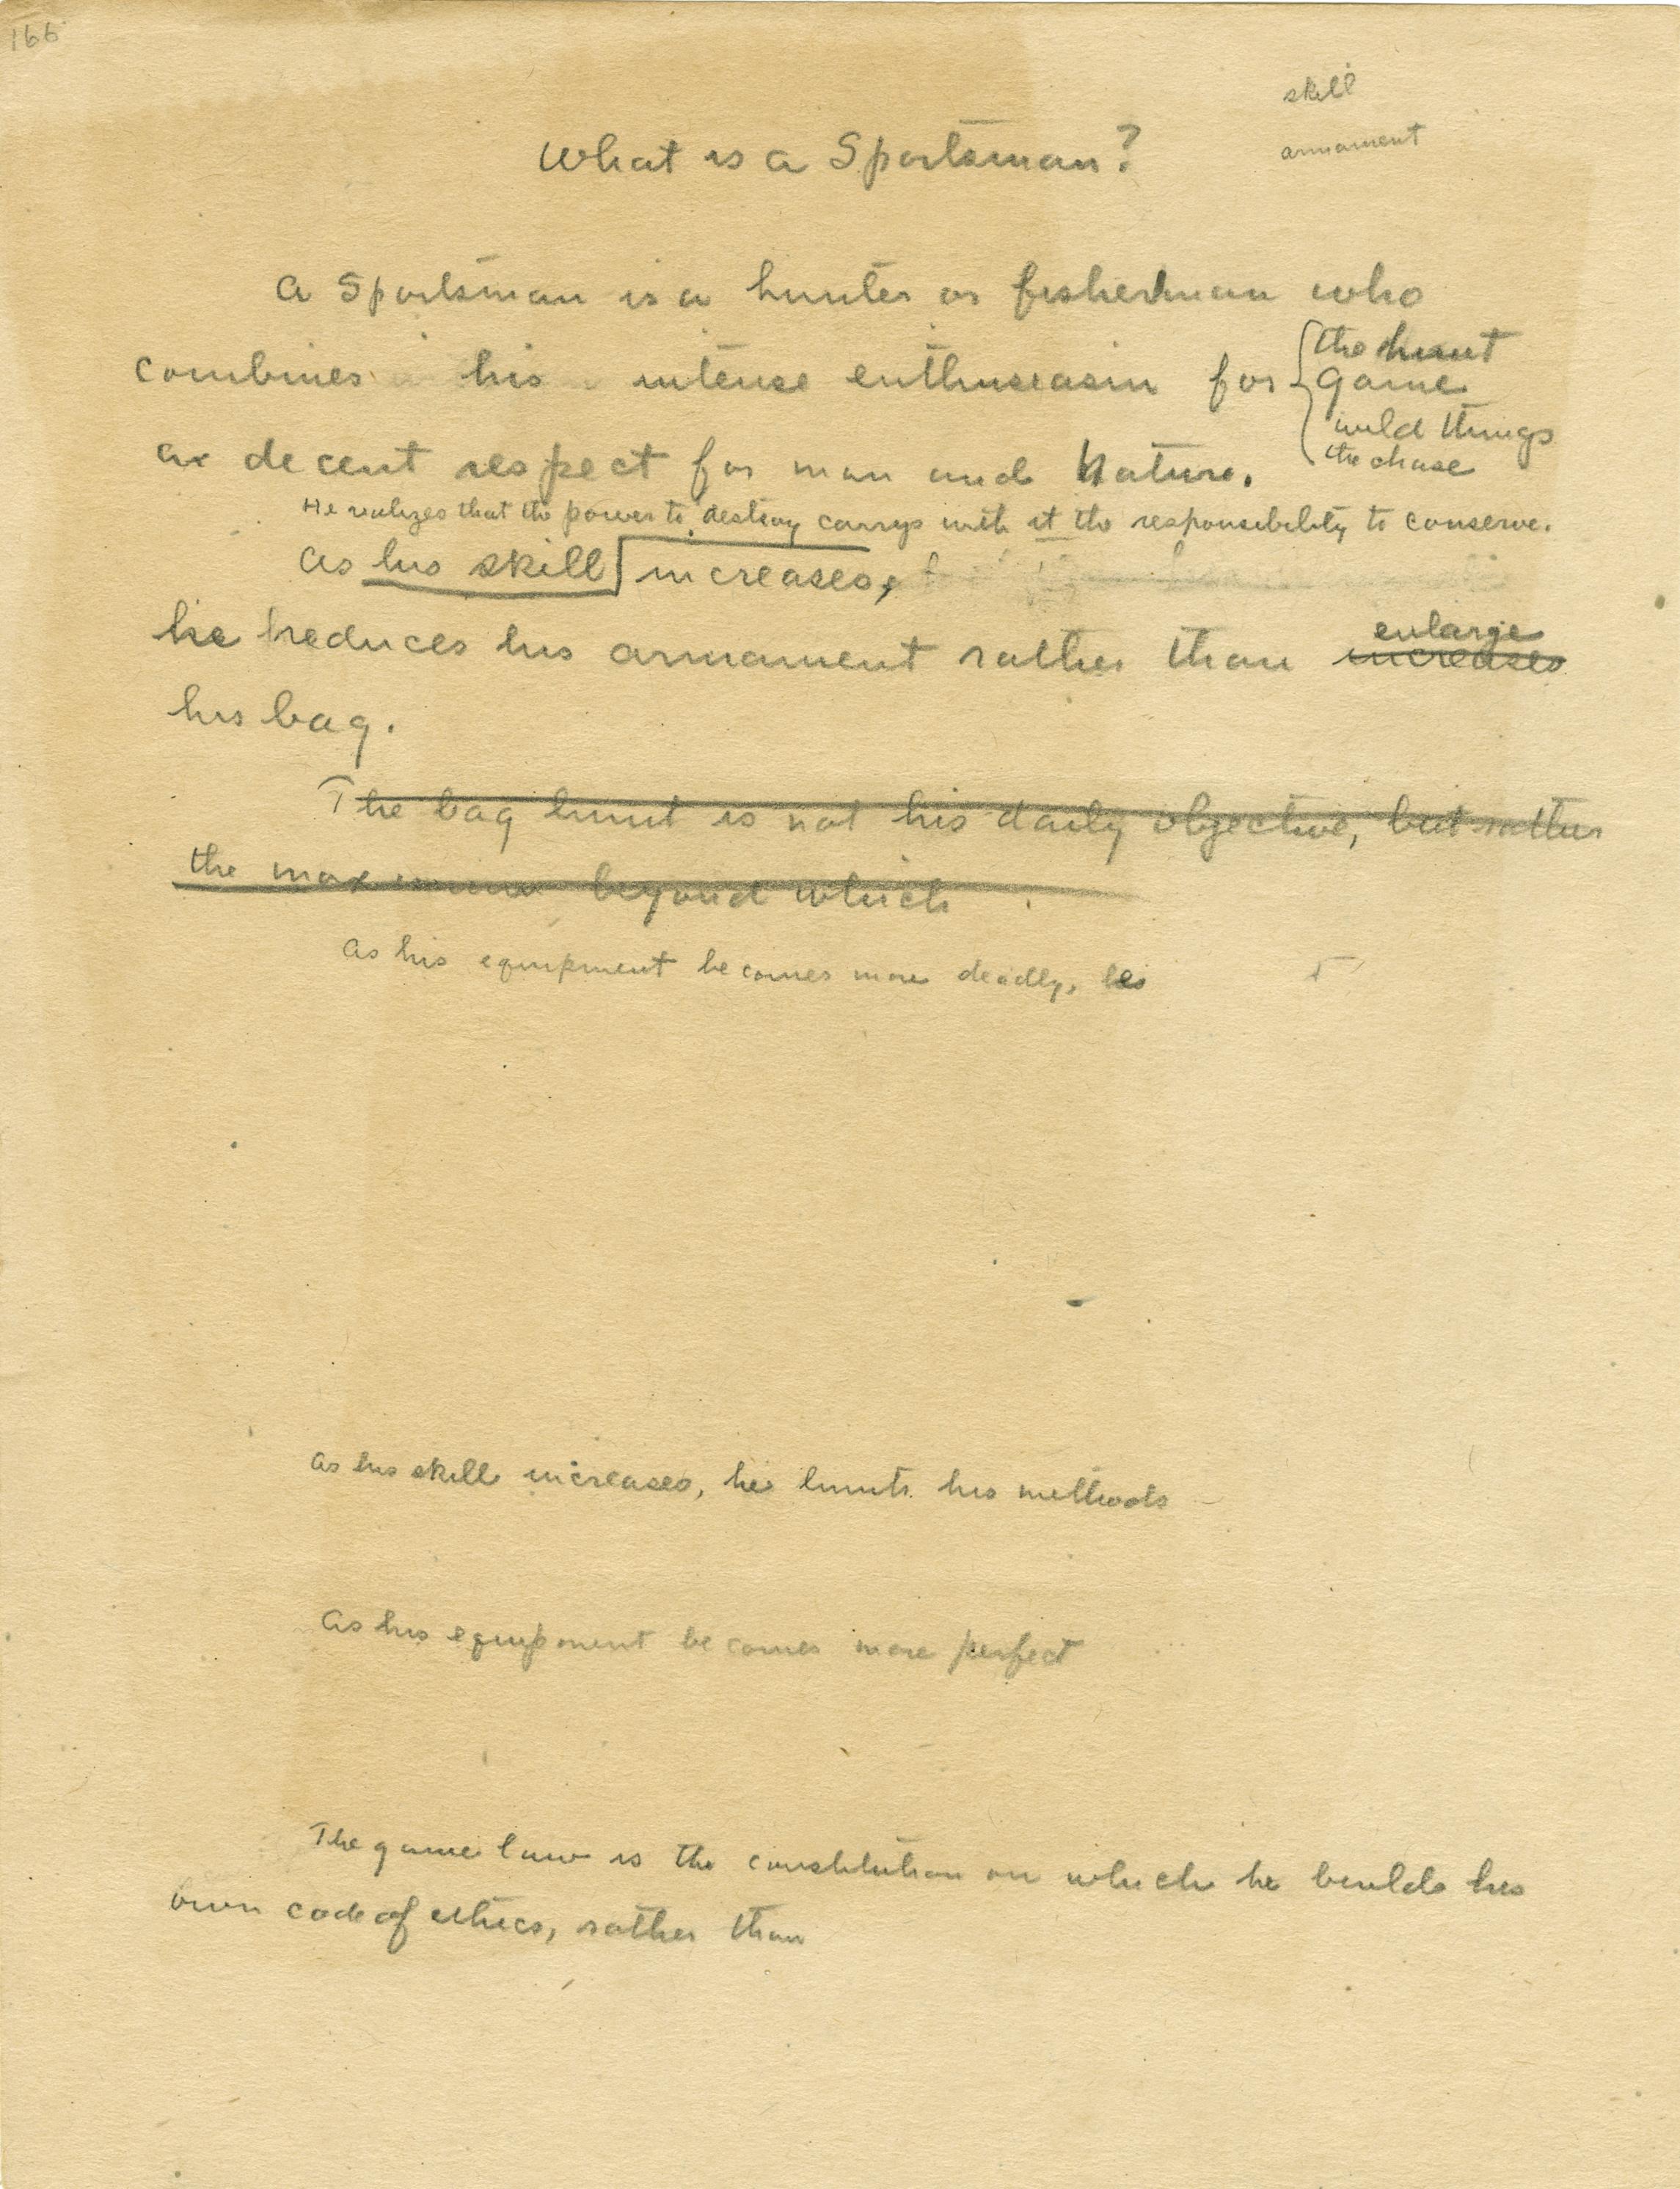 166
skill
armament
What is a Sportsman?
A Sportsman is a hunter or fisherman who
combines his intense enthusiasm for
the hunt
game
wild things
the chase
a decent respect for man and Nature.
He realizes that the power to destroy carrys with it the responsibility to conserve.
As his skill increases,
he reduces his armament rather than
enlarge
increases
his bag.
The bag limit is not his daily objective, but rather
the maximum beyond which
As his equipment becomes more deadly,
As his skill increases, he limits his methods
As his equipment becomes more perfect
The game law is the constitution on which he builds his
own code of ethics, rather than